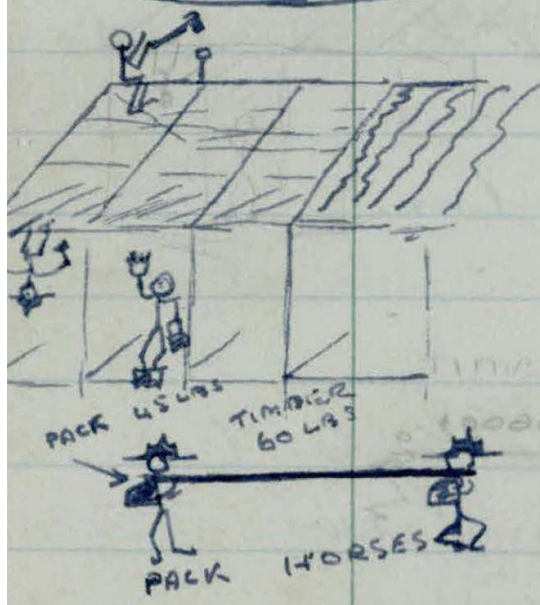 PACK 45 LBS
TIMBER
60 LBS
PACK HORSES